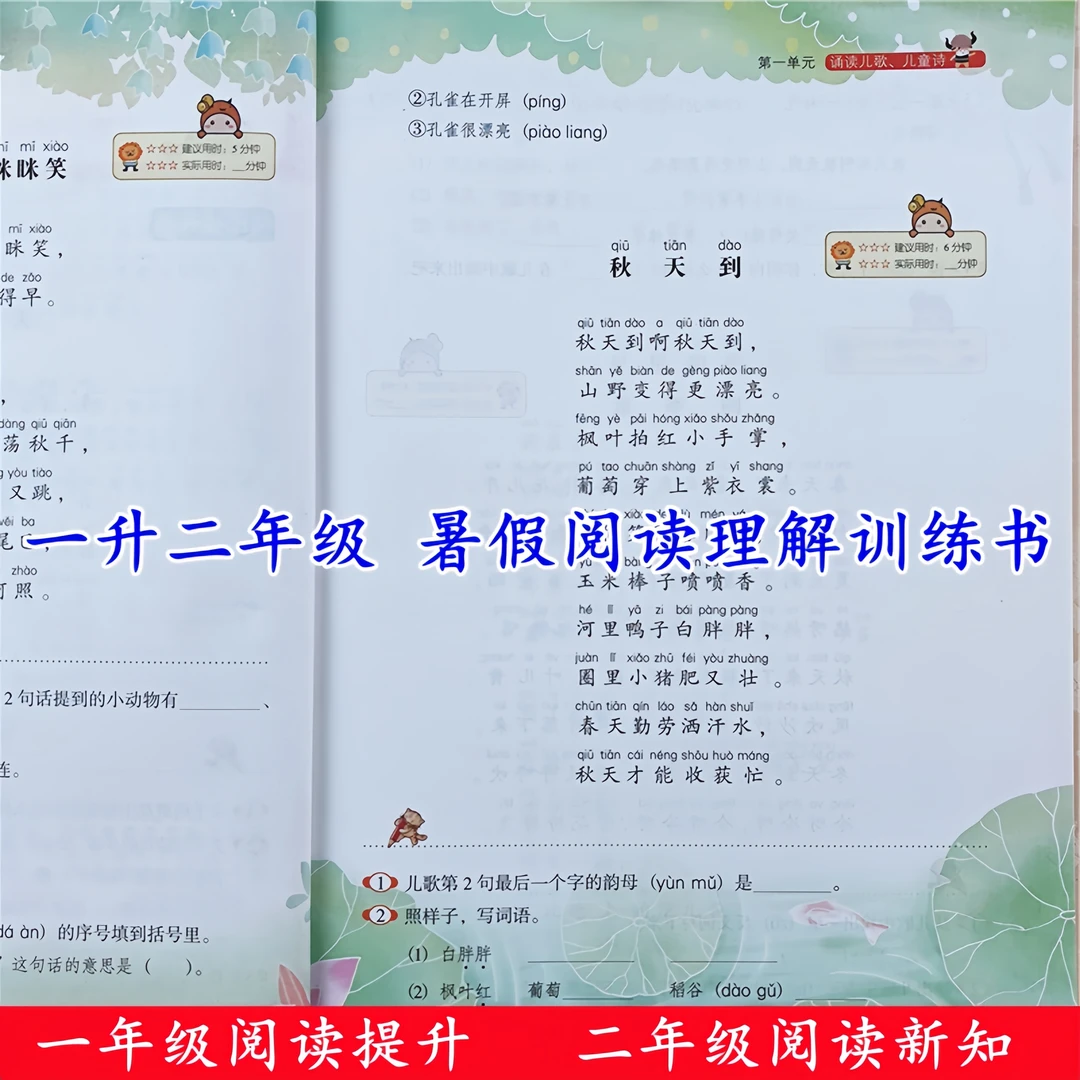 mī mī xiào
眯眯笑
☆☆☆ 建议用时：5分钟
☆☆☆ 实际用时：__分钟
mī xiào
眯笑，
de zǎo
得早。
，
dàng qiū qiān
荡秋千，
yòu tiào
又跳，
wěi ba
尾巴，
zhào
照。
2句话提到的小动物有________、
连。
dá àn）的序号填到括号里。
这句话的意思是（ ）。
第一单元 诵读儿歌、儿童诗
②孔雀在开屏（píng）
③孔雀很漂亮（piào liang）
qiū tiān dào
秋天到
☆☆☆ 建议用时：6分钟
☆☆☆ 实际用时：__分钟
qiū tiān dào a qiū tiān dào
秋天到啊秋天到，
shān yě biàn de gèng piào liang
山野变得更漂亮。
fēng yè pāi hóng xiǎo shǒu zhǎng
枫叶拍红小手掌，
pú tao chuān shàng zǐ yī shang
葡萄穿上紫衣裳。
一升二年级 暑假阅读理解训练书
玉米棒子喷喷香。
hé lǐ yā zi bái pàng pàng
河里鸭子白胖胖，
juàn lǐ xiǎo zhū féi yòu zhuàng
圈里小猪肥又壮。
chūn tiān qín láo sǎ hàn shuǐ
春天勤劳洒汗水，
qiū tiān cái néng shōu huò máng
秋天才能收获忙。
① 儿歌第2句最后一个字的韵母（yùn mǔ）是________。
② 照样子，写词语。
（1）白胖胖 ________ ________
（2）枫叶红 葡萄________ 稻谷（dào gǔ）________
一年级阅读提升 二年级阅读新知